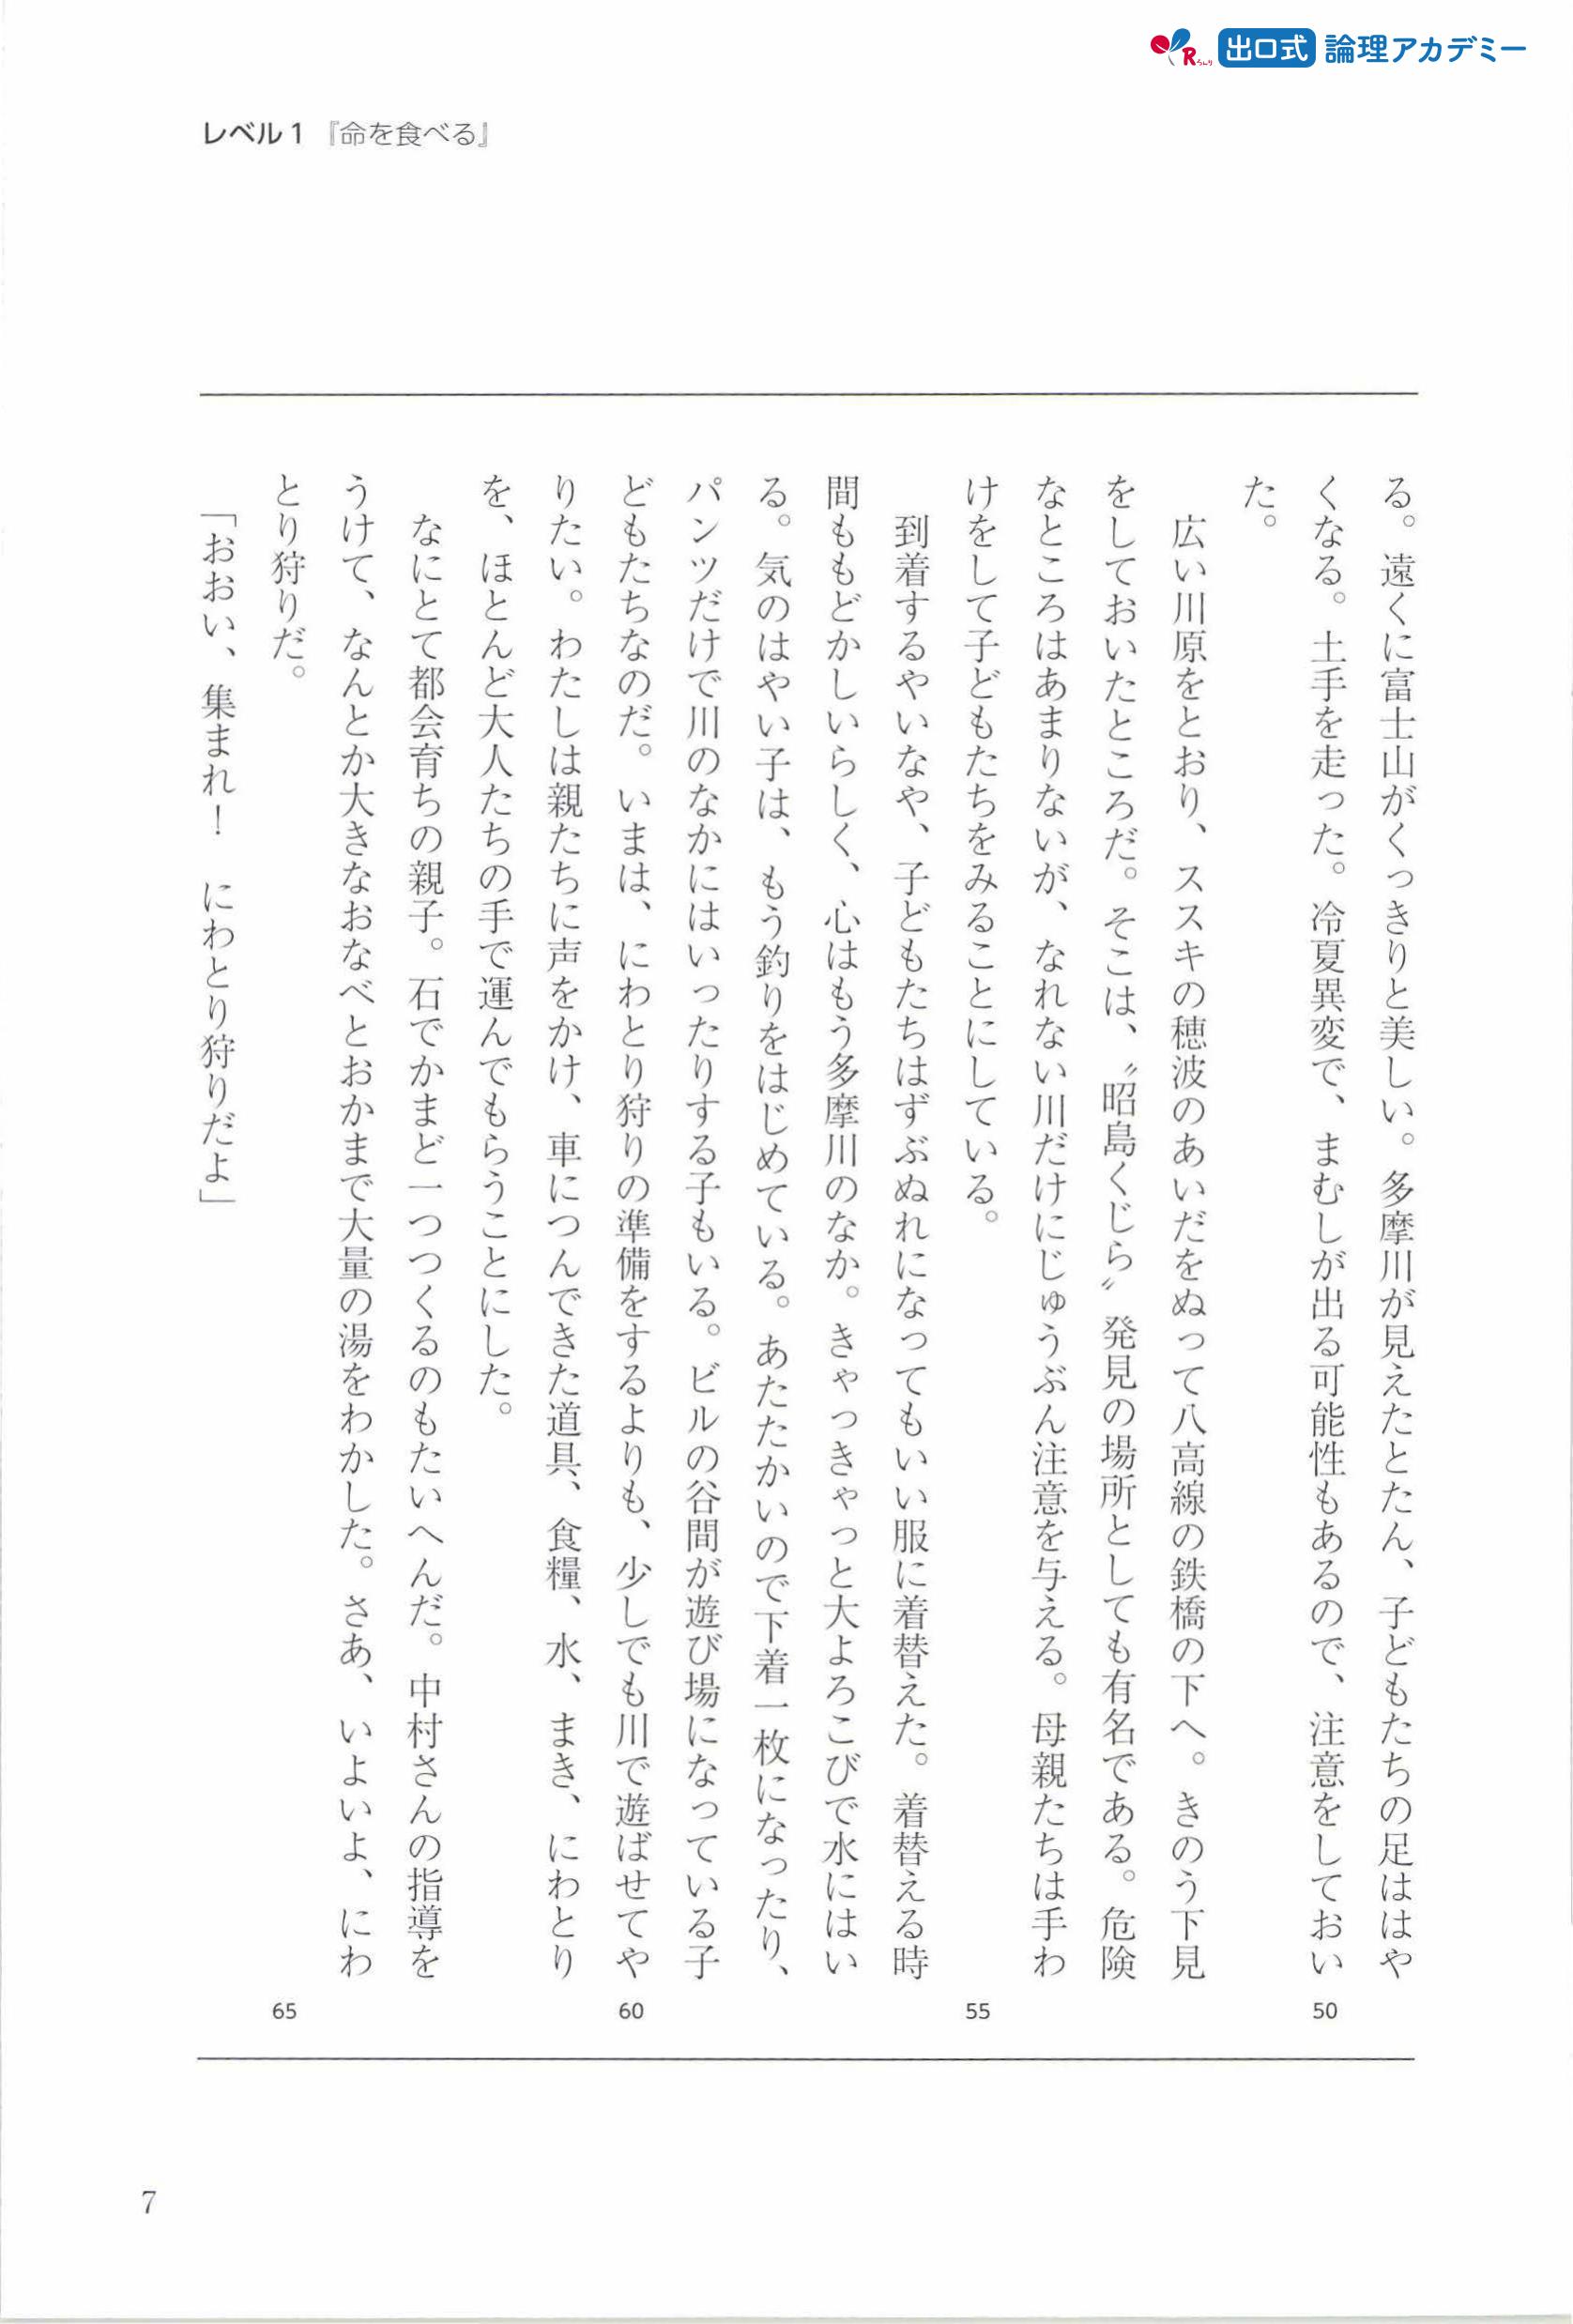 出口式 論理アカデミー
レベル1 『命を食べる』
る。遠くに富士山がくっきりと美しい。多摩川が見えたとたん、子どもたちの足ははや
くなる。土手を走った。冷夏異変で、まむしが出る可能性もあるので、注意をしておい
た。
広い川原をとおり、ススキの穂波のあいだをぬって八高線の鉄橋の下へ。きのう下見
をしておいたところだ。そこは、〝昭島くじら〟発見の場所としても有名である。危険
なところはあまりないが、なれない川だけにじゅうぶん注意を与える。母親たちは手わ
けをして子どもたちをみることにしている。
到着するやいなや、子どもたちはずぶぬれになってもいい服に着替えた。着替える時
間ももどかしいらしく、心はもう多摩川のなか。きゃっきゃっと大よろこびで水にはい
る。気のはやい子は、もう釣りをはじめている。あたたかいので下着一枚になったり、
パンツだけで川のなかにはいったりする子もいる。ビルの谷間が遊び場になっている子
どもたちなのだ。いまは、にわとり狩りの準備をするよりも、少しでも川で遊ばせてや
りたい。わたしは親たちに声をかけ、車につんできた道具、食糧、水、まき、にわとり
を、ほとんど大人たちの手で運んでもらうことにした。
なにとて都会育ちの親子。石でかまど一つつくるのもたいへんだ。中村さんの指導を
うけて、なんとか大きなおなべとおかまで大量の湯をわかした。さあ、いよいよ、にわ
とり狩りだ。
「おおい、集まれ！　にわとり狩りだよ」
50
55
60
65
7